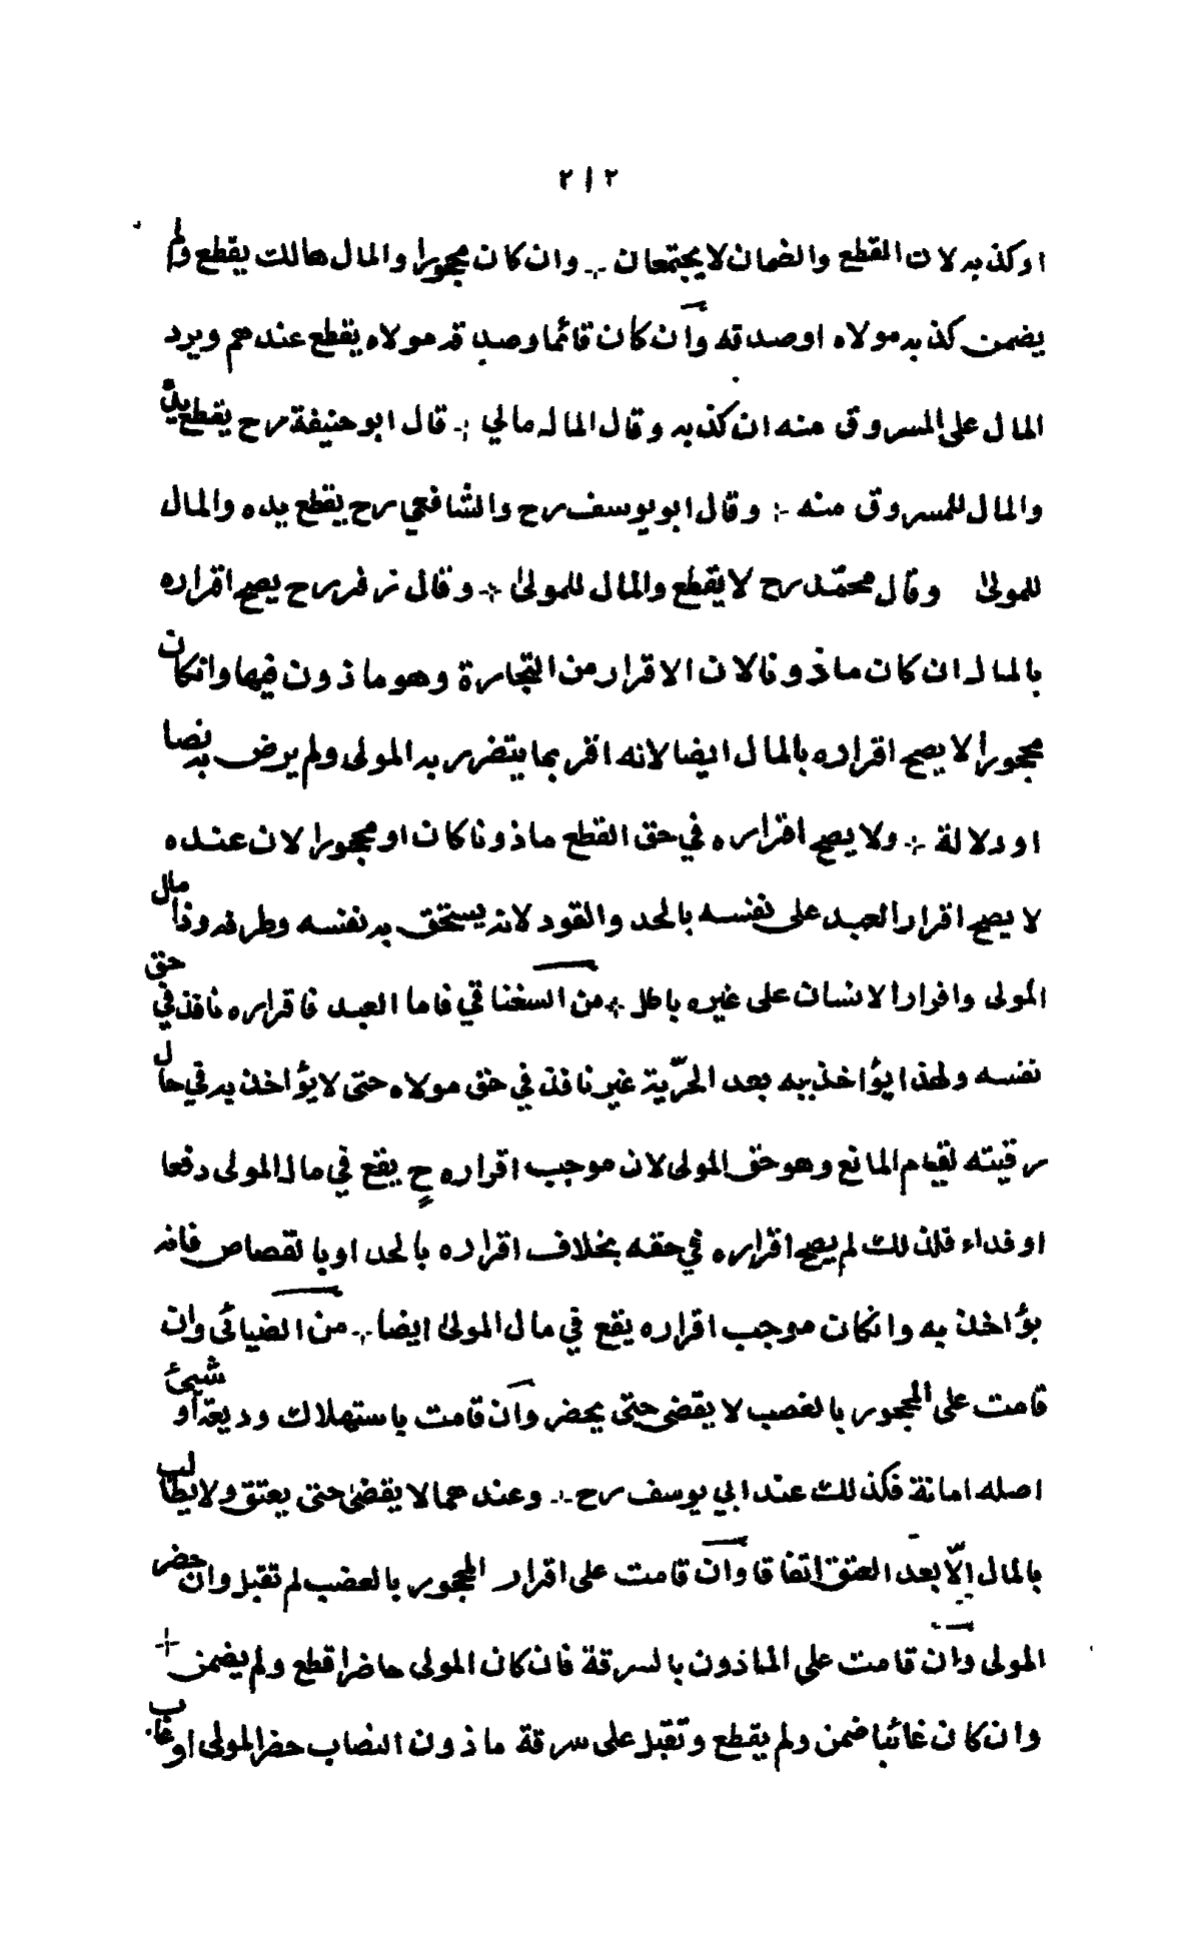 ٢١٢
او كذبه لان القطع والضمان لا يجتمعان ÷ وان كان محجورا والمال هالك يقطع ولم
يضمن كذبه مولاه او صدقه وان كان قائما وصدقه مولاه يقطع عندهم ويرد
المال على المسروق منه ان كذبه وقال المال مالي ÷ قال ابو حنيفة رح يقطع يده
والمال للمسروق منه ÷ وقال ابو يوسف رح والشافعي رح يقطع يده والمال
للمولى وقال محمّد رح لا يقطع والمال للمولى ÷ وقال زفر رح يصح اقراره
بالمال ان كان ماذونا لان الاقرار من التجارة وهو ماذون فيها وانكان
محجورا لا يصح اقراره بالمال ايضا لانه اقر بما يتضرر به المولى ولم يرض به نصا
او دلالة ÷ ولا يصح اقراره في حق القطع ماذونا كان او محجورا لان عنده
لا يصح اقرار العبد على نفسه بالحد والقود لانه يستحق به نفسه وطرفه وذا مال
المولى واقرار الانسان على غيره باطل ÷ من السغناقي فاما العبد فاقراره نافذ في حق
نفسه ولهذا يؤاخذ به بعد الحرّية غير نافذ في حق مولاه حتى لا يؤاخذ به في حال
رقيته لقيام المانع وهو حق المولى لان موجب اقراره ح يقع في مال المولى دفعا
او فداء فلذلك لم يصح اقراره في حقه بخلاف اقراره بالحد او بالقصاص فانه
يؤاخذ به وانكان موجب اقراره يقع في مال المولى ايضا ÷ من الضيائى وان
قامت على المحجور بالغصب لا يقضى حتى يحضر وان قامت باستهلاك وديعة او شيئ
اصله امانة فكذلك عند ابي يوسف رح ÷ وعندهما لا يقضى حتى يعتق ولا يطالب
بالمال الّا بعد العتق اتفاقا وان قامت على اقرار المحجور بالغضب لم تقبل وان حضر
المولى وان قامت على الماذون بالسرقة فان كان المولى حاضرا قطع ولم يضمن ÷
وان كان غائبا ضمن ولم يقطع وتقبل على سرقة ماذون النصاب حضر المولى او غاب